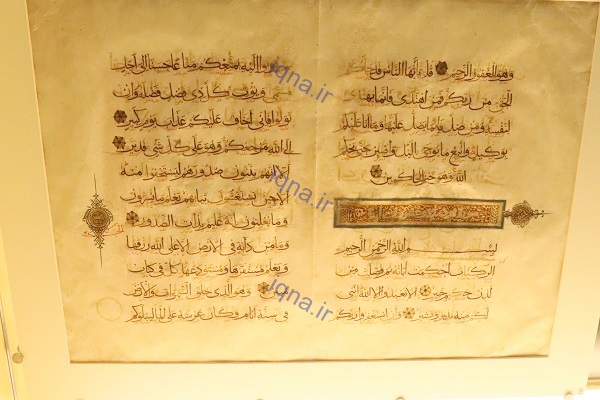 وهو الغفور الرحيم قل يا أيها الناس قد جاءكم
الحق من ربكم فمن اهتدى فإنما يهتدي
لنفسه ومن ضل فإنما يضل عليها وما أنا عليكم
بوكيل واتبع ما يوحى إليك واصبر حتى يحكم
الله وهو خير الحاكمين
بسم الله الرحمن الرحيم
الر كتاب أحكمت آياته ثم فصلت من
لدن حكيم خبير ألا تعبدوا إلا الله إنني
لكم منه نذير وبشير وأن استغفروا ربكم
ثم توبوا إليه يمتعكم متاعا حسنا إلى أجل
مسمى ويؤت كل ذي فضل فضله وإن
تولوا فإني أخاف عليكم عذاب يوم كبير
إلى الله مرجعكم وهو على كل شيء قدير
ألا إنهم يثنون صدورهم ليستخفوا منه
ألا حين يستغشون ثيابهم يعلم ما يسرون
وما يعلنون إنه عليم بذات الصدور
وما من دابة في الأرض إلا على الله رزقها
ويعلم مستقرها ومستودعها كل في كتاب
مبين وهو الذي خلق السموات والأرض
في ستة أيام وكان عرشه على الماء ليبلوكم
iqna.ir
iqna.ir
iqna.ir